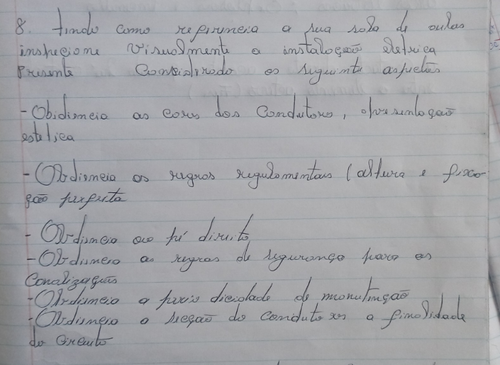 8. tendo como referencia a sua sala de aulas
inspecione visualmente a instalação eletrica
presente considerado os seguinte aspetos
- Obidiencia as cores dos condutores, apresentação
estetica
- Obidiencia as regras regulamentais (altura e fixa
ção perfeita
- Obidiencia ao pé direito
- Obidiencia as regras de segurança para as
Canalizações
- Obidiencia a periodicidade de manutenção
- Obidiencia a secção do condutores a finalidade
do circuito